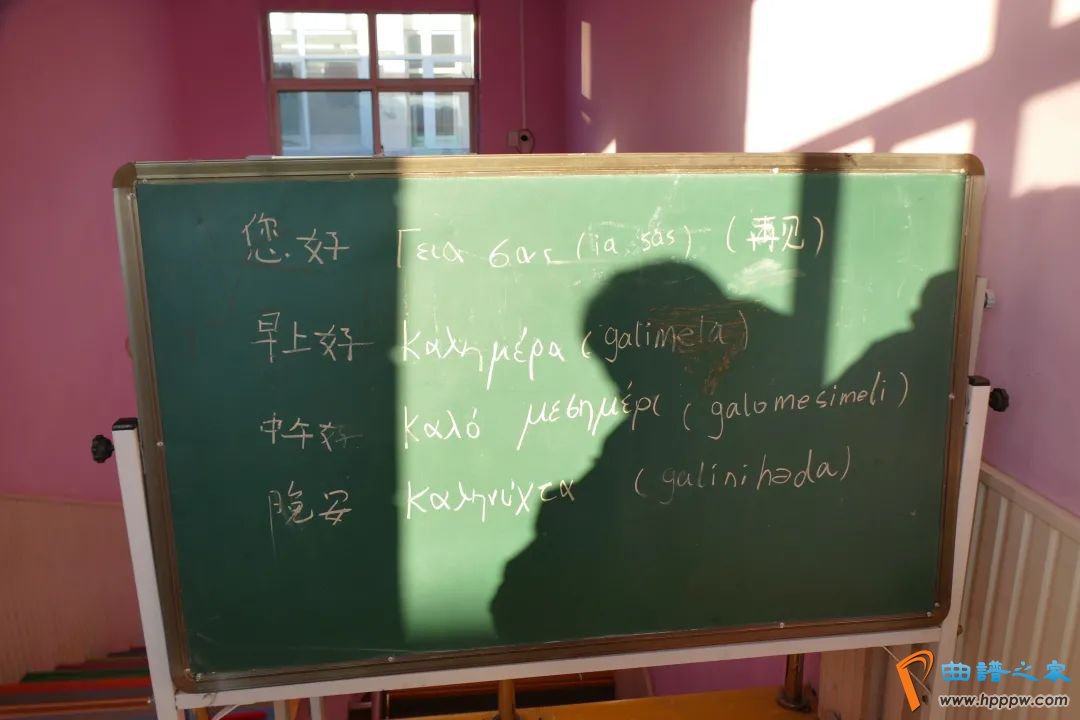 您好 Γεια σας (ia sas) (再见)
早上好 καλημέρα (galimela)
中午好 καλό μεσημέρι (galomesimeli)
晚安 καληνύχτα (galinihəda)
曲谱之家
www.hpppw.com